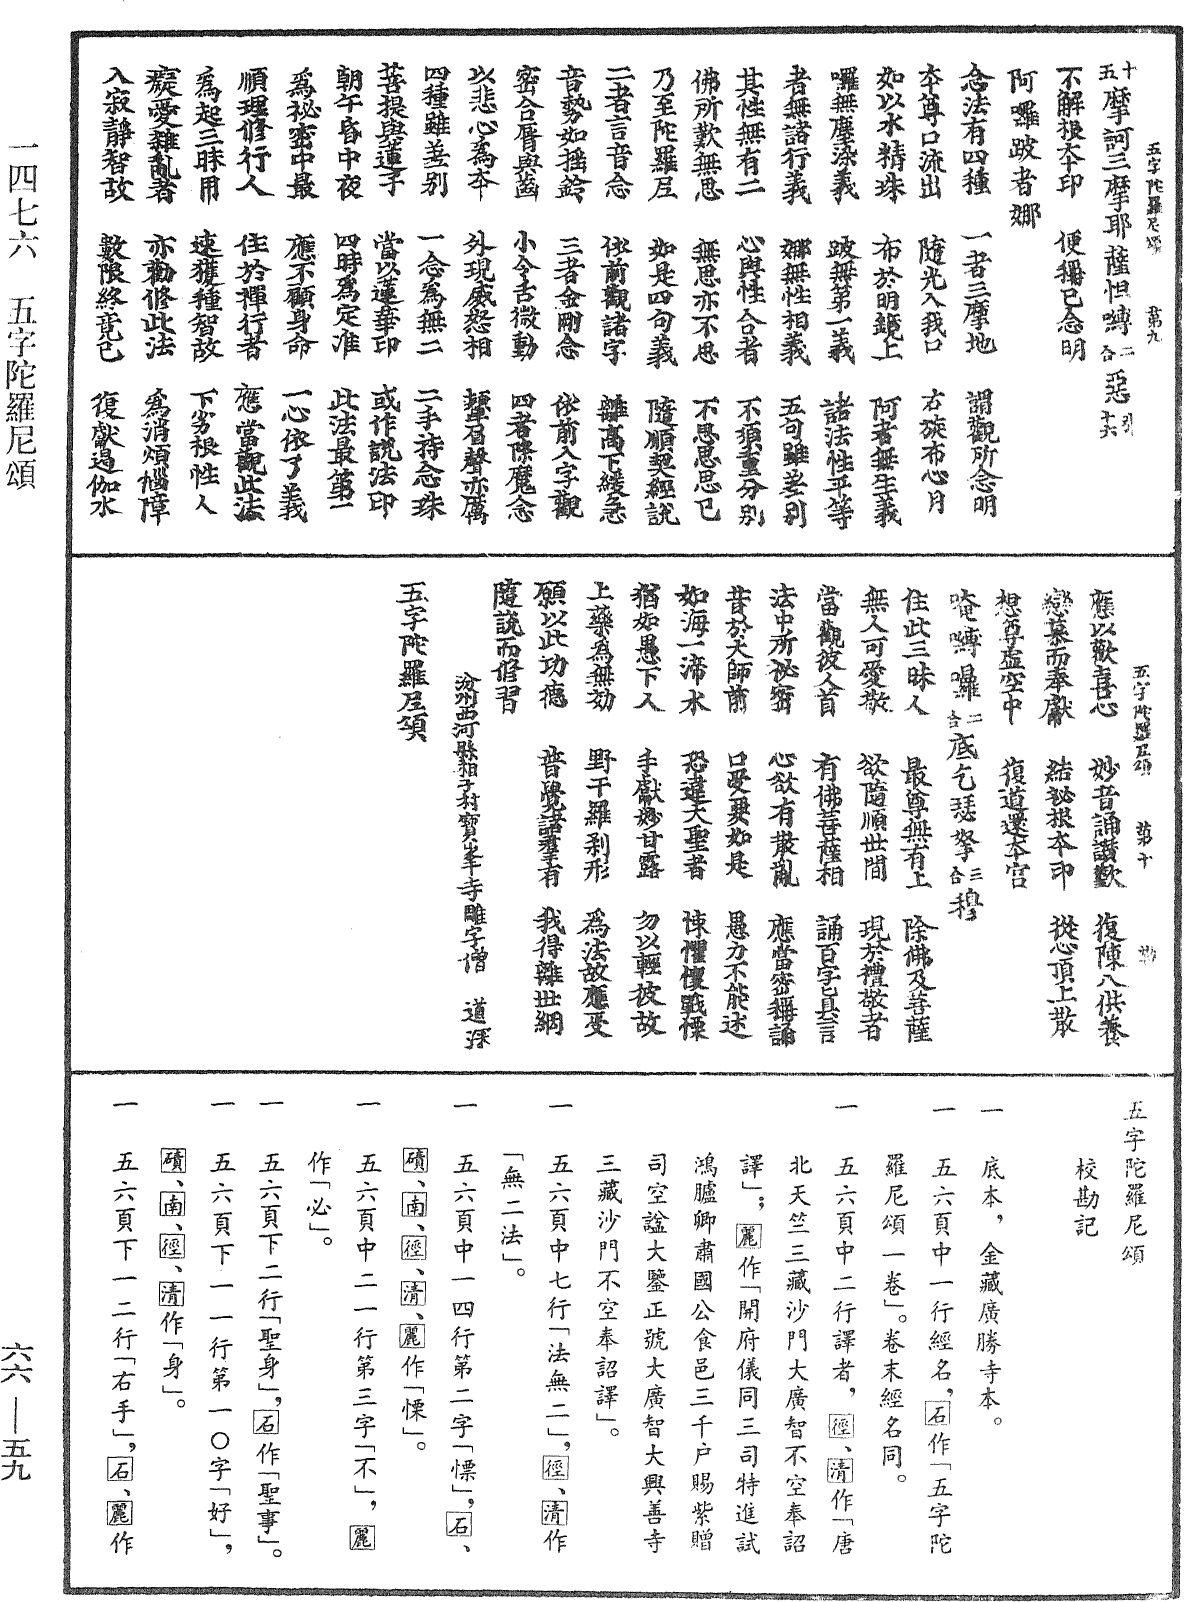 五字陀羅尼頌　第九
十五摩訶三摩耶薩怛嚩二合惡十六引
不解根本印　便稱已念明
阿囉跛者娜
念法有四種　一者三摩地　謂觀所念明
本尊口流出　隨光入我口　右旋布心月
如以水精珠　布於明鏡上　阿者無生義
囉無塵染義　跛無第一義　諸法性平等
者無諸行義　娜無性相義　五句雖差別
其性無有二　心與性合者　不須重分別
佛所歎無思　無思亦不思　不思思思已
乃至陀羅尼　如是四句義　隨順契經說
二者言音念　依前觀諸字　離高下緩急
音勢如搖鈴　三者金剛念　依前入字觀
密合脣與齒　小令舌微動　四者降魔念
以悲心為本　外現威怒相　顰眉聲亦厲
四種雖差別　一念為無二　二手持念珠
菩提與蓮子　當以蓮華印　或作說法印
朝午昏中夜　四時為定准　此法最第一
為祕密中最　應不顧身命　一心依了義
順理修行人　住於禪行者　應當觀此法
為起三昧用　速獲種智故　下劣根性人
癡愛雜亂者　亦勸修此法　為消煩惱障
入寂靜智故　數限終竟已　復獻遏伽水
五字陀羅尼頌　第十
應以歡喜心　妙音誦讚歎　復陳八供養
戀慕而奉獻　結祕根本印　從心頂上散
想尊虛空中　復道還本宮
唵嚩囉二合底乞瑟拏三合穆
住此三昧人　最尊無有上　除佛及菩薩
無人可愛敬　欲隨順世間　現於禮敬者
當觀彼人首　有佛菩薩相　誦百字真言
法中所祕密　心欲有散亂　應當密稱誦
昔於大師前　口受要如是　愚力不能述
如海一渧水　恐違大聖者　悚懼懷戰慄
猶如愚下人　手獻妙甘露　勿以輕彼故
上藥為無効　野干羅剎形　為法故應受
願以此功德　普覺諸羣有　我得離世網
隨說而修習
汾州西河縣相子村寶峯寺雕字僧　道深
五字陀羅尼頌
五字陀羅尼頌
校勘記
一　底本，金藏廣勝寺本。
一　五六頁中一行經名，石作「五字陀
羅尼頌一卷」。卷末經名同。
一　五六頁中二行譯者，徑、清作「唐
北天竺三藏沙門大廣智不空奉詔
譯」；麗作「開府儀同三司特進試
鴻臚卿肅國公食邑三千户賜紫贈
司空謚大鑒正號大廣智大興善寺
三藏沙門不空奉詔譯」。
一　五六頁中七行「法無二」，徑、清作
「無二法」。
一　五六頁中一四行第二字「慓」，石、
磧、南、徑、清、麗作「慄」。
一　五六頁中二一行第三字「不」，麗
作「必」。
一　五六頁下二行「聖身」，石作「聖事」。
一　五六頁下一一行第一〇字「好」，
磧、南、徑、清作「身」。
一　五六頁下一二行「右手」，石、麗作
一四七六　五字陀羅尼頌
六六—五九